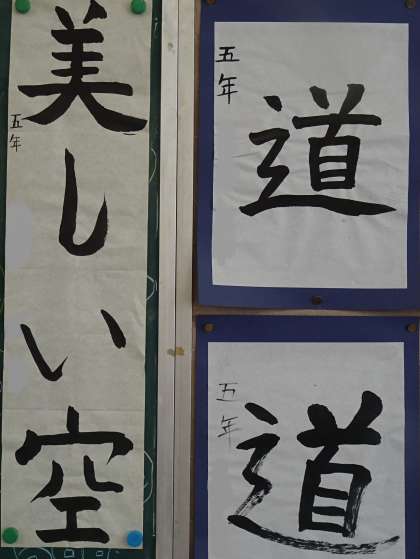 美しい空
五年
五年
道
五年
道